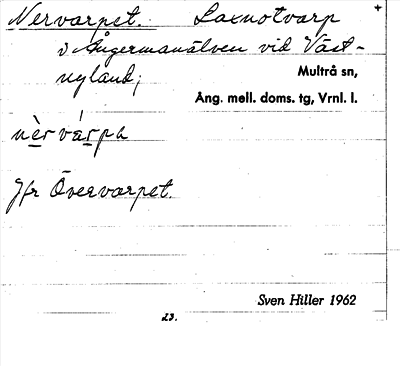 Nervarpet. Laxnotvarp
i Ångermanälven vid Väst-
nyland;
Multrå sn,
Ång. mell. doms. tg, Vrnl. l.
nèr várpa
Jfr Övervarpet.
Sven Hiller 1962
23.